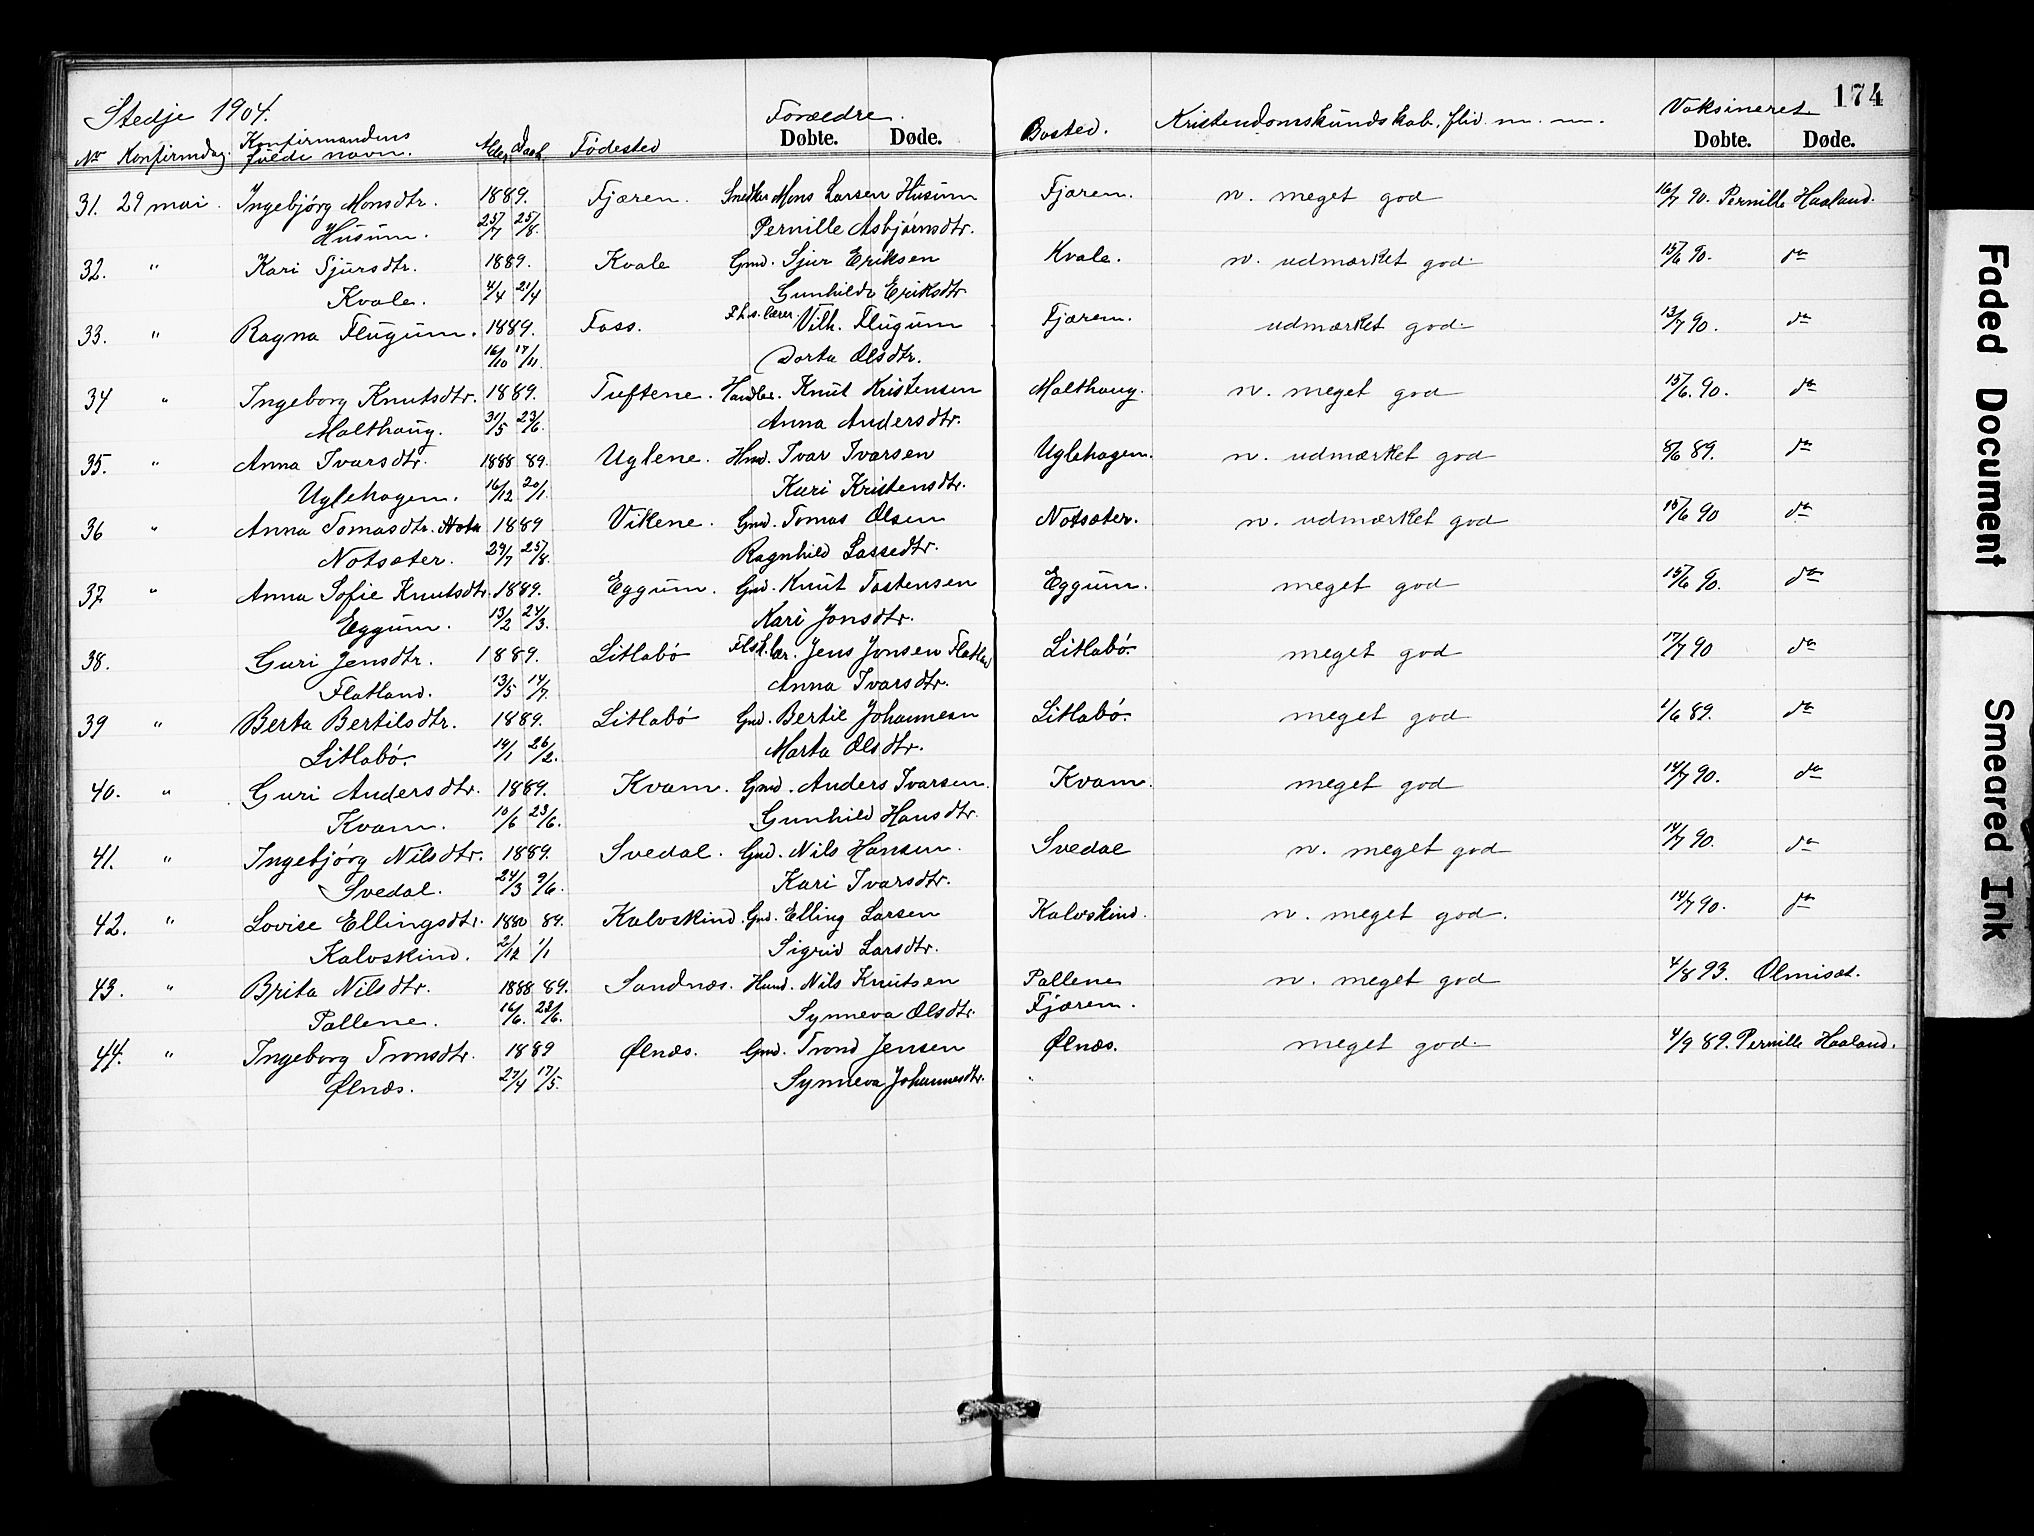 174
Stedje 1904.
Forældre.
Vaksineret.
Nr Konfirmdag. Konfirmandens fulde navn. Alder Daab Fødested Døbte. Døde. Bosted. Kristendomskundskab, flid m. m. Døbte. Døde.
31. 29 mai. Ingebjørg Monsdtr. 1889. Fjæren. Snedker Mons Larsen Husum Fjæren. n. meget god 16/7 90. Pernille Haaland.
Husum. 25/7 25/8. Pernille Asbjørnsdtr.
32. " Kari Sjursdtr. 1889. Kvale Gmd. Sjur Eriksen Kvale. n. udmærket god. 15/6 90. do
Kvale. 4/4 21/4 Gunhilda Eriksdtr
33. " Ragna Flugum. 1889. Foss. F.h.s.lærer. Vilh. Flugum Fjæren. udmærket god. 13/7 90. do
16/10 17/11. Dorta Olsdtr.
34 " Ingeborg Knutsdtr. 1889. Tuftene. Handler. Knut Kristensen Malthaug. n. meget god 15/6. 90. do
Malthaug. 31/5 23/6. Anna Andersdtr.
35. " Anna Ivarsdtr. 1888 89. Uglene. Hmd. Ivar Ivarsen Uglehagen. n. udmærket god 8/6 89. do
Uglehagen. 16/12 20/1. Kari Kristensdtr.
36 " Anna Tomasdtr. 1889 Vikene. Gmd. Tomas Olsen Notsæter. n. udmærket god 15/6 90 do
Notsæter. 29/7 25/8. Ragnhild Lassedtr.
37 " Anna Sofie Knutsdtr. 1889. Eggum. Gmd. Knut Tostensen Eggum. meget god 15/6 90. do
Eggum. 13/2 24/3. Kari Jonsdtr.
38. Guri Jensdtr. 1889. Litlabø Jens Jonsen Flatland Litlabø. meget god 17/7 90 do
Flatland. 13/5 14/7. Anna Ivarsdtr.
39 " Berta Bertilsdtr. 1889. Litlabø Gmd. Bertil Johannesn Litlabø. meget god 1/6 89. do
Litlabø. 14/1 26/2. Marta Olsdtr.
40. " Guri Andersdtr. 1889. Kvam. Gmd. Anders Ivarsen. Kvam. meget god 14/7 90. do
Kvam. 10/6 23/6. Gunhild Hansdtr.
41. " Ingebjørg Nilsdtr. 1889. Svedal. Gmd. Nils Hansen. Svedal n. meget god 14/7 90. do
Svedal. 24/3 9/6. Kari Ivarsdtr.
42. " Lovise Ellingsdtr. 1880 89. Kalvskind. Gmd. Elling Larsen Kalvskind. n. meget god. 14/7 90. do
Kalvskind. 2/12 1/1 Sigrid Larsdtr.
43. " Brita Nilsdtr. 1888 89. Sandnæs. Husmd. Nils Knutsen Pallene n. meget god 4/8 93. Olmisæt.
Pallene. 16/6. 23/6. Synneva Olsdtr. Fjæren.
44. " Ingeborg Tronsdtr. 1889 Ølnæs. Gmd. Trond Jensen Ølnæs. meget god. 4/9 89. Pernille Haaland.
Ølnæs. 27/4 17/5. Synneva Johannesdtr.
Faded Document
Smeared Ink